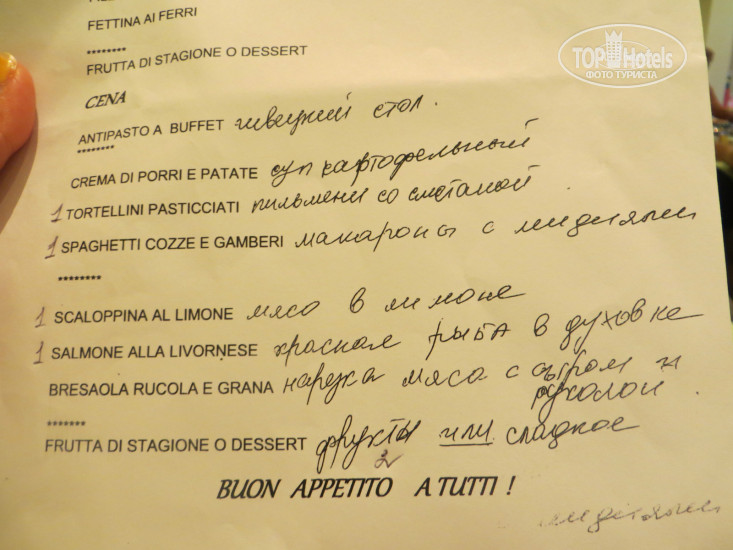 FETTINA AI FERRI
********
FRUTTA DI STAGIONE O DESSERT
CENA
ANTIPASTO A BUFFET шведский стол.
********
CREMA DI PORRI E PATATE суп картофельный
1 TORTELLINI PASTICCIATI пильмени со сметаной
1 SPAGHETTI COZZE E GAMBERI макароны с мидиями
********
1 SCALOPPINA AL LIMONE мясо в лимоне
1 SALMONE ALLA LIVORNESE красная рыба в духовке
BRESAOLA RUCOLA E GRANA нарезка мяса с сыром и
руколой
*******
FRUTTA DI STAGIONE O DESSERT фрукты или сладкое
2
BUON APPETITO A TUTTI !
TOP Hotels
ФОТО ТУРИСТА